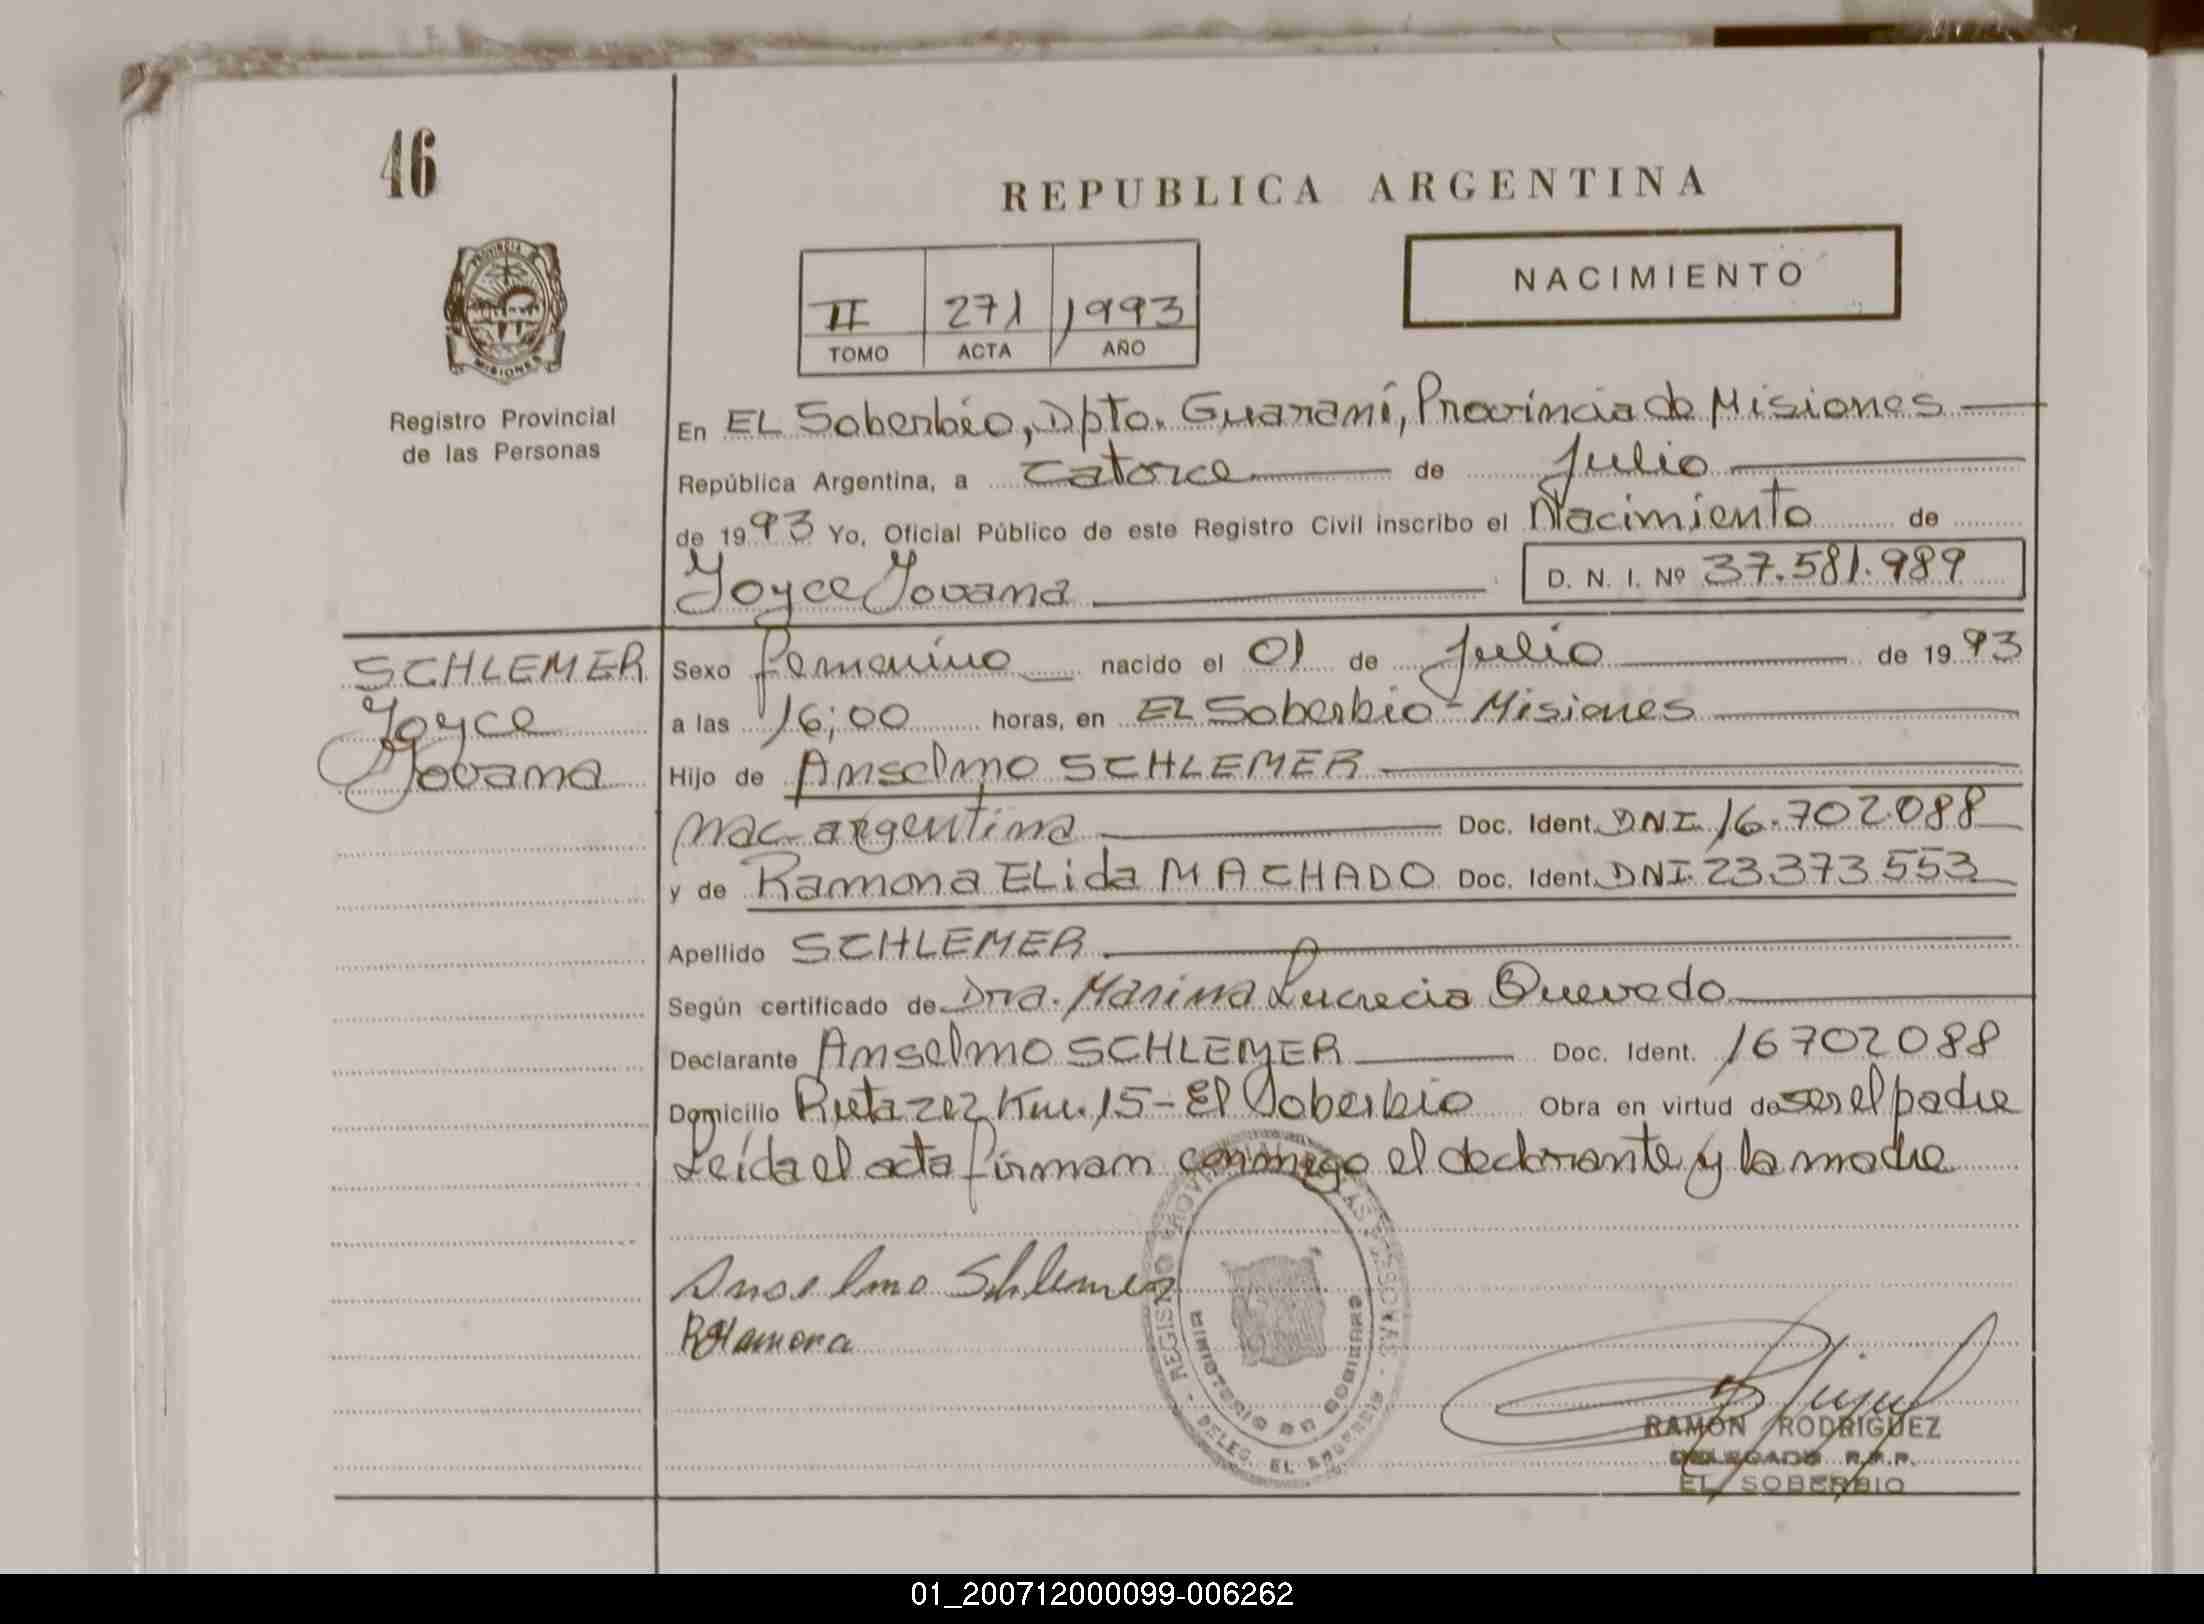 46
REPUBLICA ARGENTINA
NACIMIENTO
II 271 1993
TOMO ACTA AÑO
PROVINCIA
MISIONES
Registro Provincial
de las Personas
En EL Soberbio, Dpto. Guaraní, Provincia de Misiones
República Argentina, a catorce de Julio
de 1993 Yo, Oficial Público de este Registro Civil inscribo el Nacimiento de
Joyce Jovana D. N. I. Nº 37.581.989
SCHLEMER
Joyce
Jovana
Sexo femenino nacido el 01 de Julio de 1993
a las 16;00 horas, en EL Soberbio - Misiones
Hijo de Anselmo SCHLEMER
nac. argentina Doc. Ident. DNI. 16.702.088
y de Ramona ELida MACHADO Doc. Ident. DNI. 23.373.553
Apellido SCHLEMER
Según certificado de Dra. Marina Lucrecia Quevedo
Declarante Anselmo SCHLEMER Doc. Ident. 16702088
Domicilio Ruta 202 Km. 15 - El Soberbio Obra en virtud de ser el padre
Leída el acta firman conmigo el declarante y la madre
Anselmo Schlemer
Ramona
REGISTRO PROVINCIAL DE LAS PERSONAS
MINISTERIO DE GOBIERNO
DELEG. EL SOBERBIO
RAMON RODRIGUEZ
DELEGADO R.P.P.
EL SOBERBIO
01_200712000099-006262